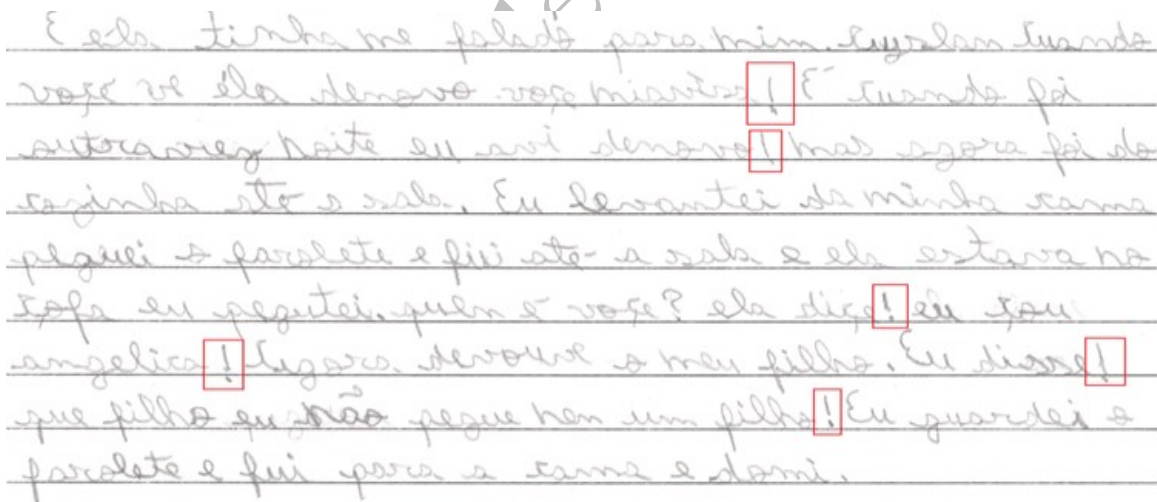 E éla tinha me falado para mim. Cuando
voçe ve éla denovo voçe ! E cuando foi
noite eu avi denovo! mas agora foi da
cozinha ate a sala. Eu levantei da minha cama
peguei a farolete e fui até a sala e ela estava no
çofa eu pegutei. quem é voçe? ela diçe! eu çou
angelica! E agora. devouve o meu filho. Eu disse!
que filho eu não pegue nen um filho! Eu guardei o
farolete e fui para a cama e domi.